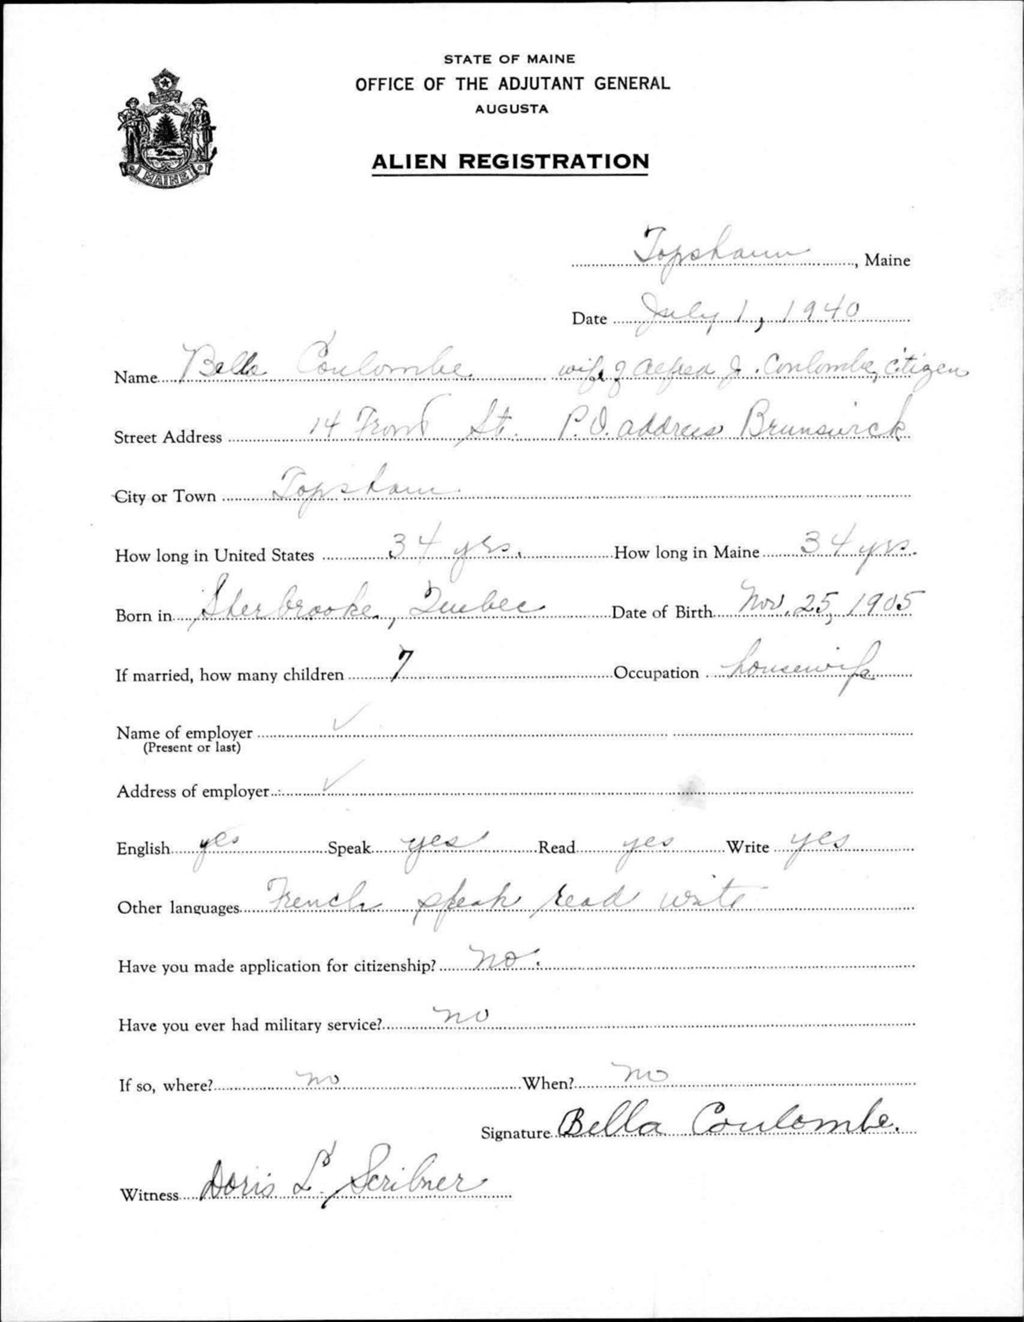 STATE OF MAINE
OFFICE OF THE ADJUTANT GENERAL
AUGUSTA
ALIEN REGISTRATION
MAINE
Topsham, Maine
Date July 1, 1940
Name Bella Coulombe wife of Alfred J. Coulombe, citizen
Street Address 14 Front St. P.O. address Brunswick
City or Town Topsham
How long in United States 34 yrs. How long in Maine 34 yrs.
Born in Sherbrooke, Quebec Date of Birth Nov. 25, 1905
If married, how many children 7 Occupation housewife
Name of employer ✓
(Present or last)
Address of employer ✓
English yes Speak yes Read yes Write yes
Other languages French speak read write
Have you made application for citizenship? No.
Have you ever had military service? no
If so, where? no When? no
Signature Bella Coulombe.
Witness Doris L. Scribner